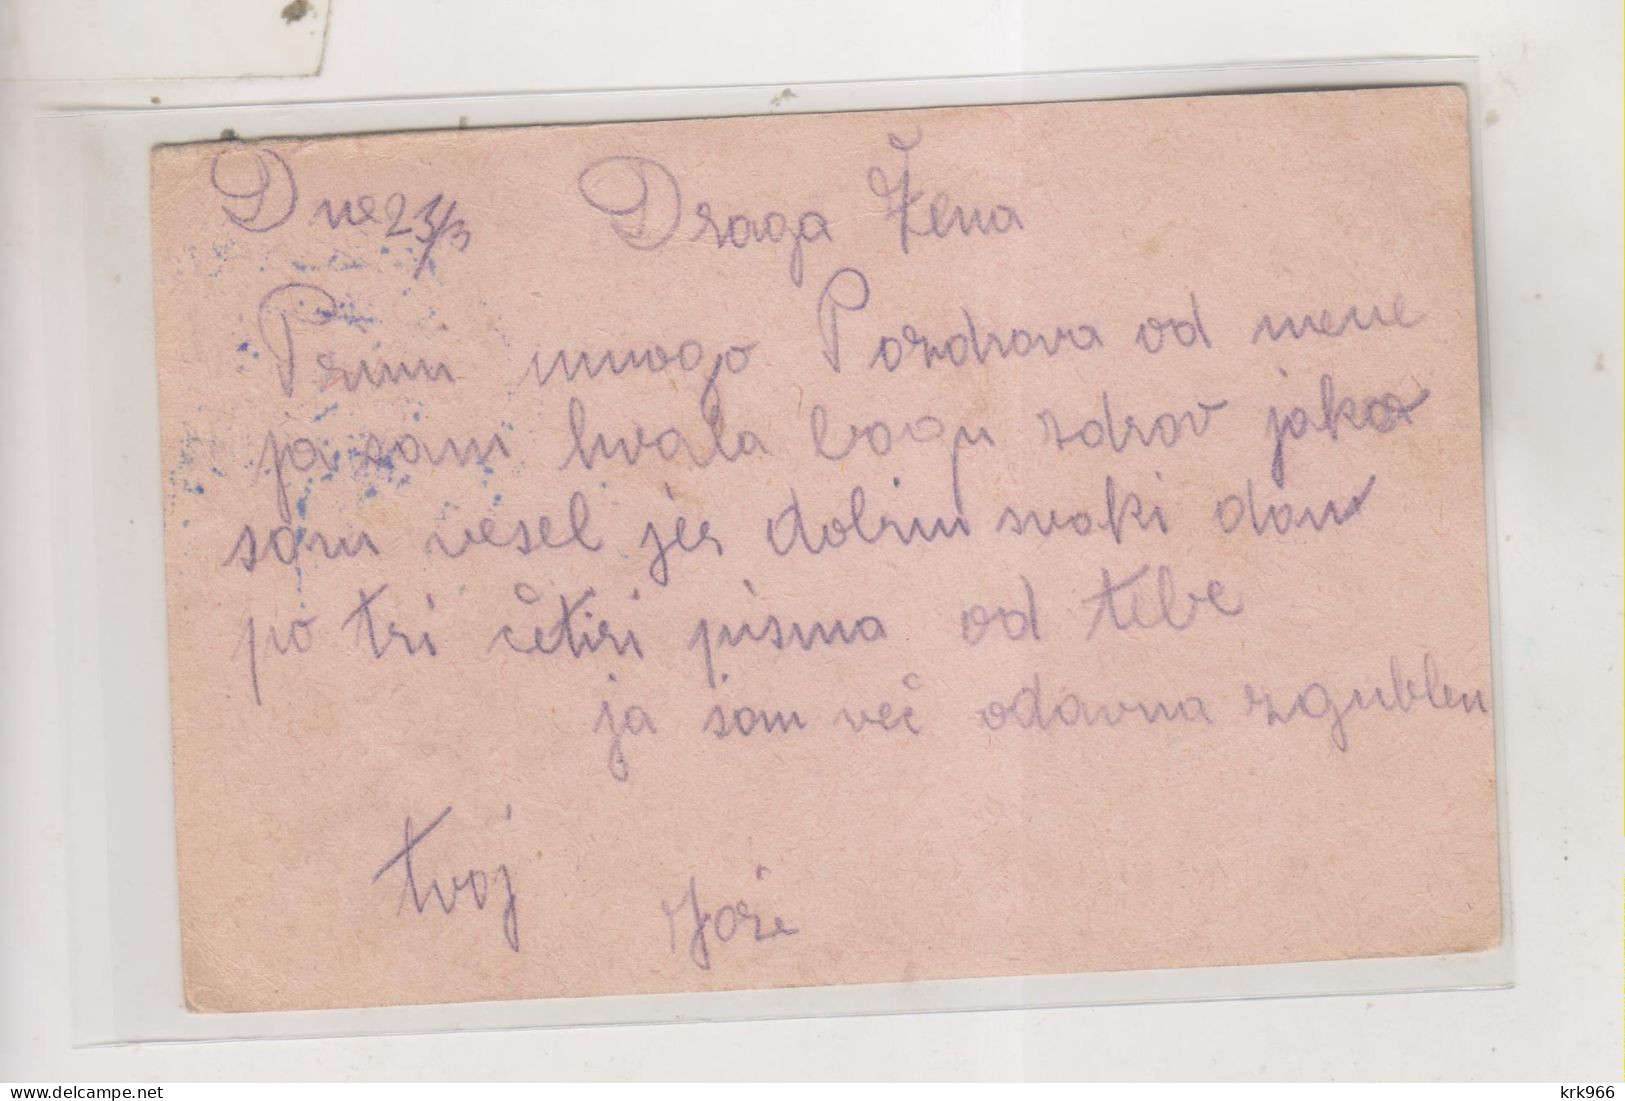 Dne 23/3 Draga Žena
Primi mnogo Pozdrava od mene
ja sam hvala bogu zdrov jako
sam vesel jer dobim svaki dan
po tri četiri pisma od tebe
ja sam več odavna zgublen
tvoj Jože
krk966